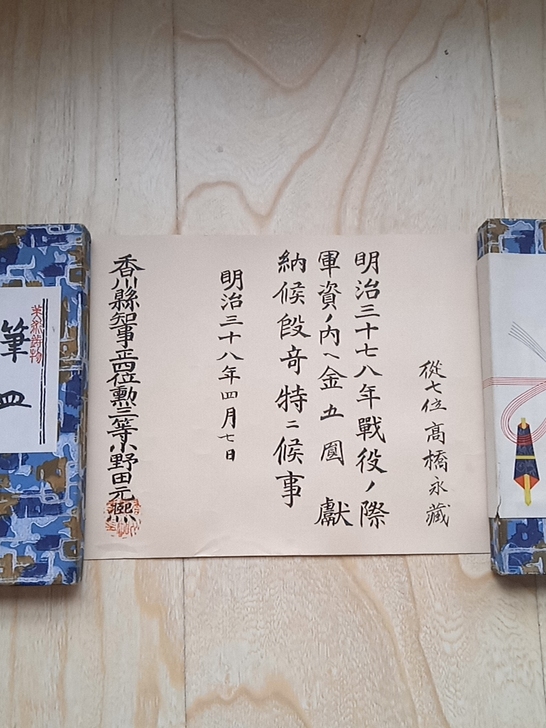 從七位髙橋永藏
明治三十七八年戰役ノ際
軍資ノ内ヘ金五圓獻
納候段竒特ニ候事
明治三十八年四月七日
香川縣知事正四位勲三等小野田元煕
筆四